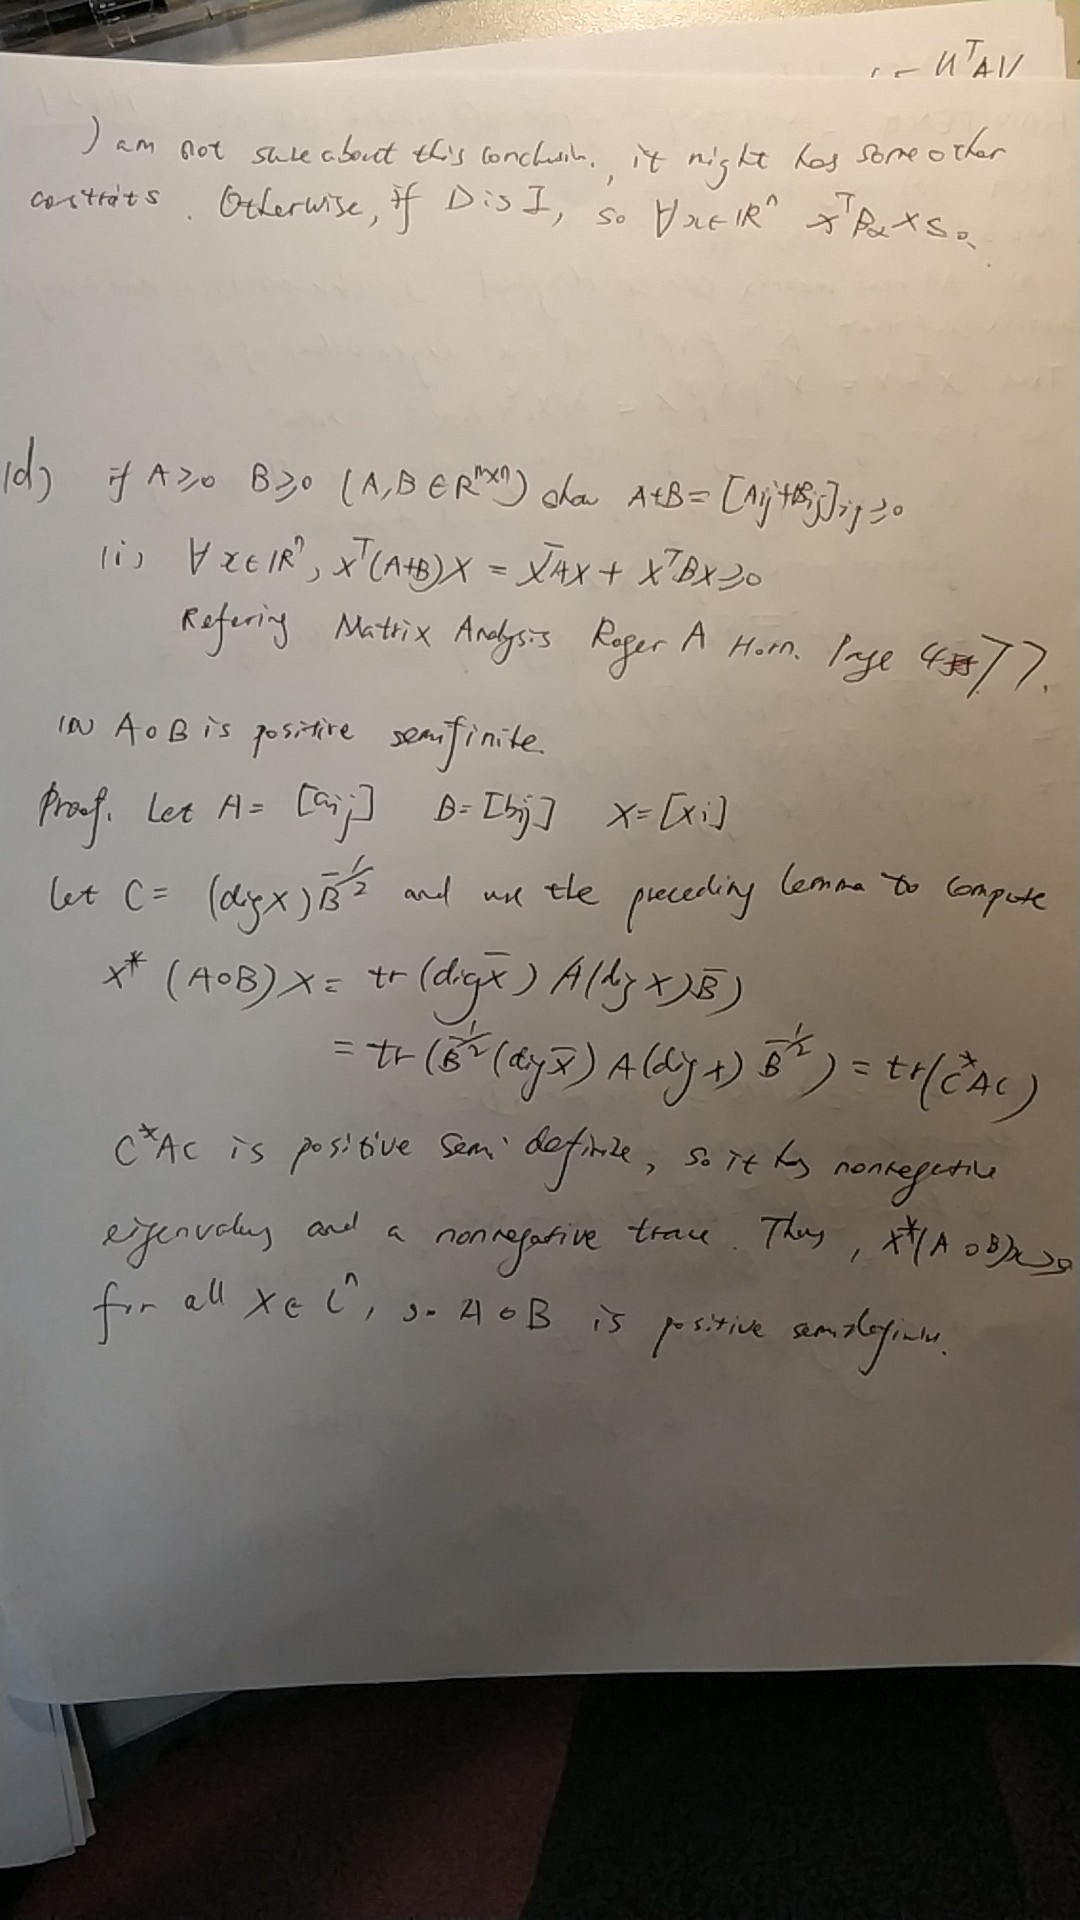 UᵀAV
I am not sure about this conclusion, it might has some other
constraits. Otherwise, if D is I, so ∀x∈ℝⁿ xᵀBαx≤0.
(d) if A≥0 B≥0 (A,B∈Rⁿˣⁿ) show A+B=[Aij+Bij]ij≥0
(i) ∀x∈ℝⁿ, xᵀ(A+B)x = xᵀAx + xᵀBx≥0
Refering Matrix Analysis Roger A Horn. Page 477.
(ii) A∘B is positive semifinite.
Proof. Let A=[aij] B=[bij] x=[xi]
Let C= (diag x)B̄^½ and use the preceding lemma to compute
x*(A∘B)x= tr(diag x̄)A(diag x)B̄)
= tr(B̄^½(diag x̄)A(diag x)B̄^½) = tr(C*AC)
C*AC is positive semi definite, so it has nonnegative
eigenvalues and a nonnegative trace. Thus, x*(A∘B)x≥0
for all x∈ℂⁿ, so A∘B is positive semidefinite.